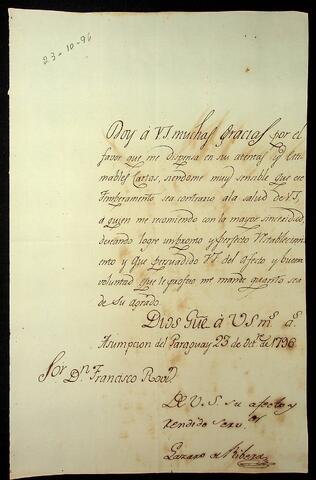 23-10-96
Doy á V.S. muchas gracias por el
favor que me dispensa en su atenta y esti-
mables Cartas, siendome muy sensible que ese
Temperamento sea contrario ala salud de V.S,
a quien me recomiendo con la mayor sinceridad,
deseando logre un pronto y perfecto restableci-
ento y que persuadido VS del afecto y buena
voluntad que le profeso me mande quanto sea
de su agrado.
Dios gũe á V.S mˢ aˢ
Asumpcion del Paraguay 23 de Octᵉ de 1796
Sor Dⁿ Francisco
De V.S. su afecto y
rendido serv.ᵒʳ
Lazaro de Ribera